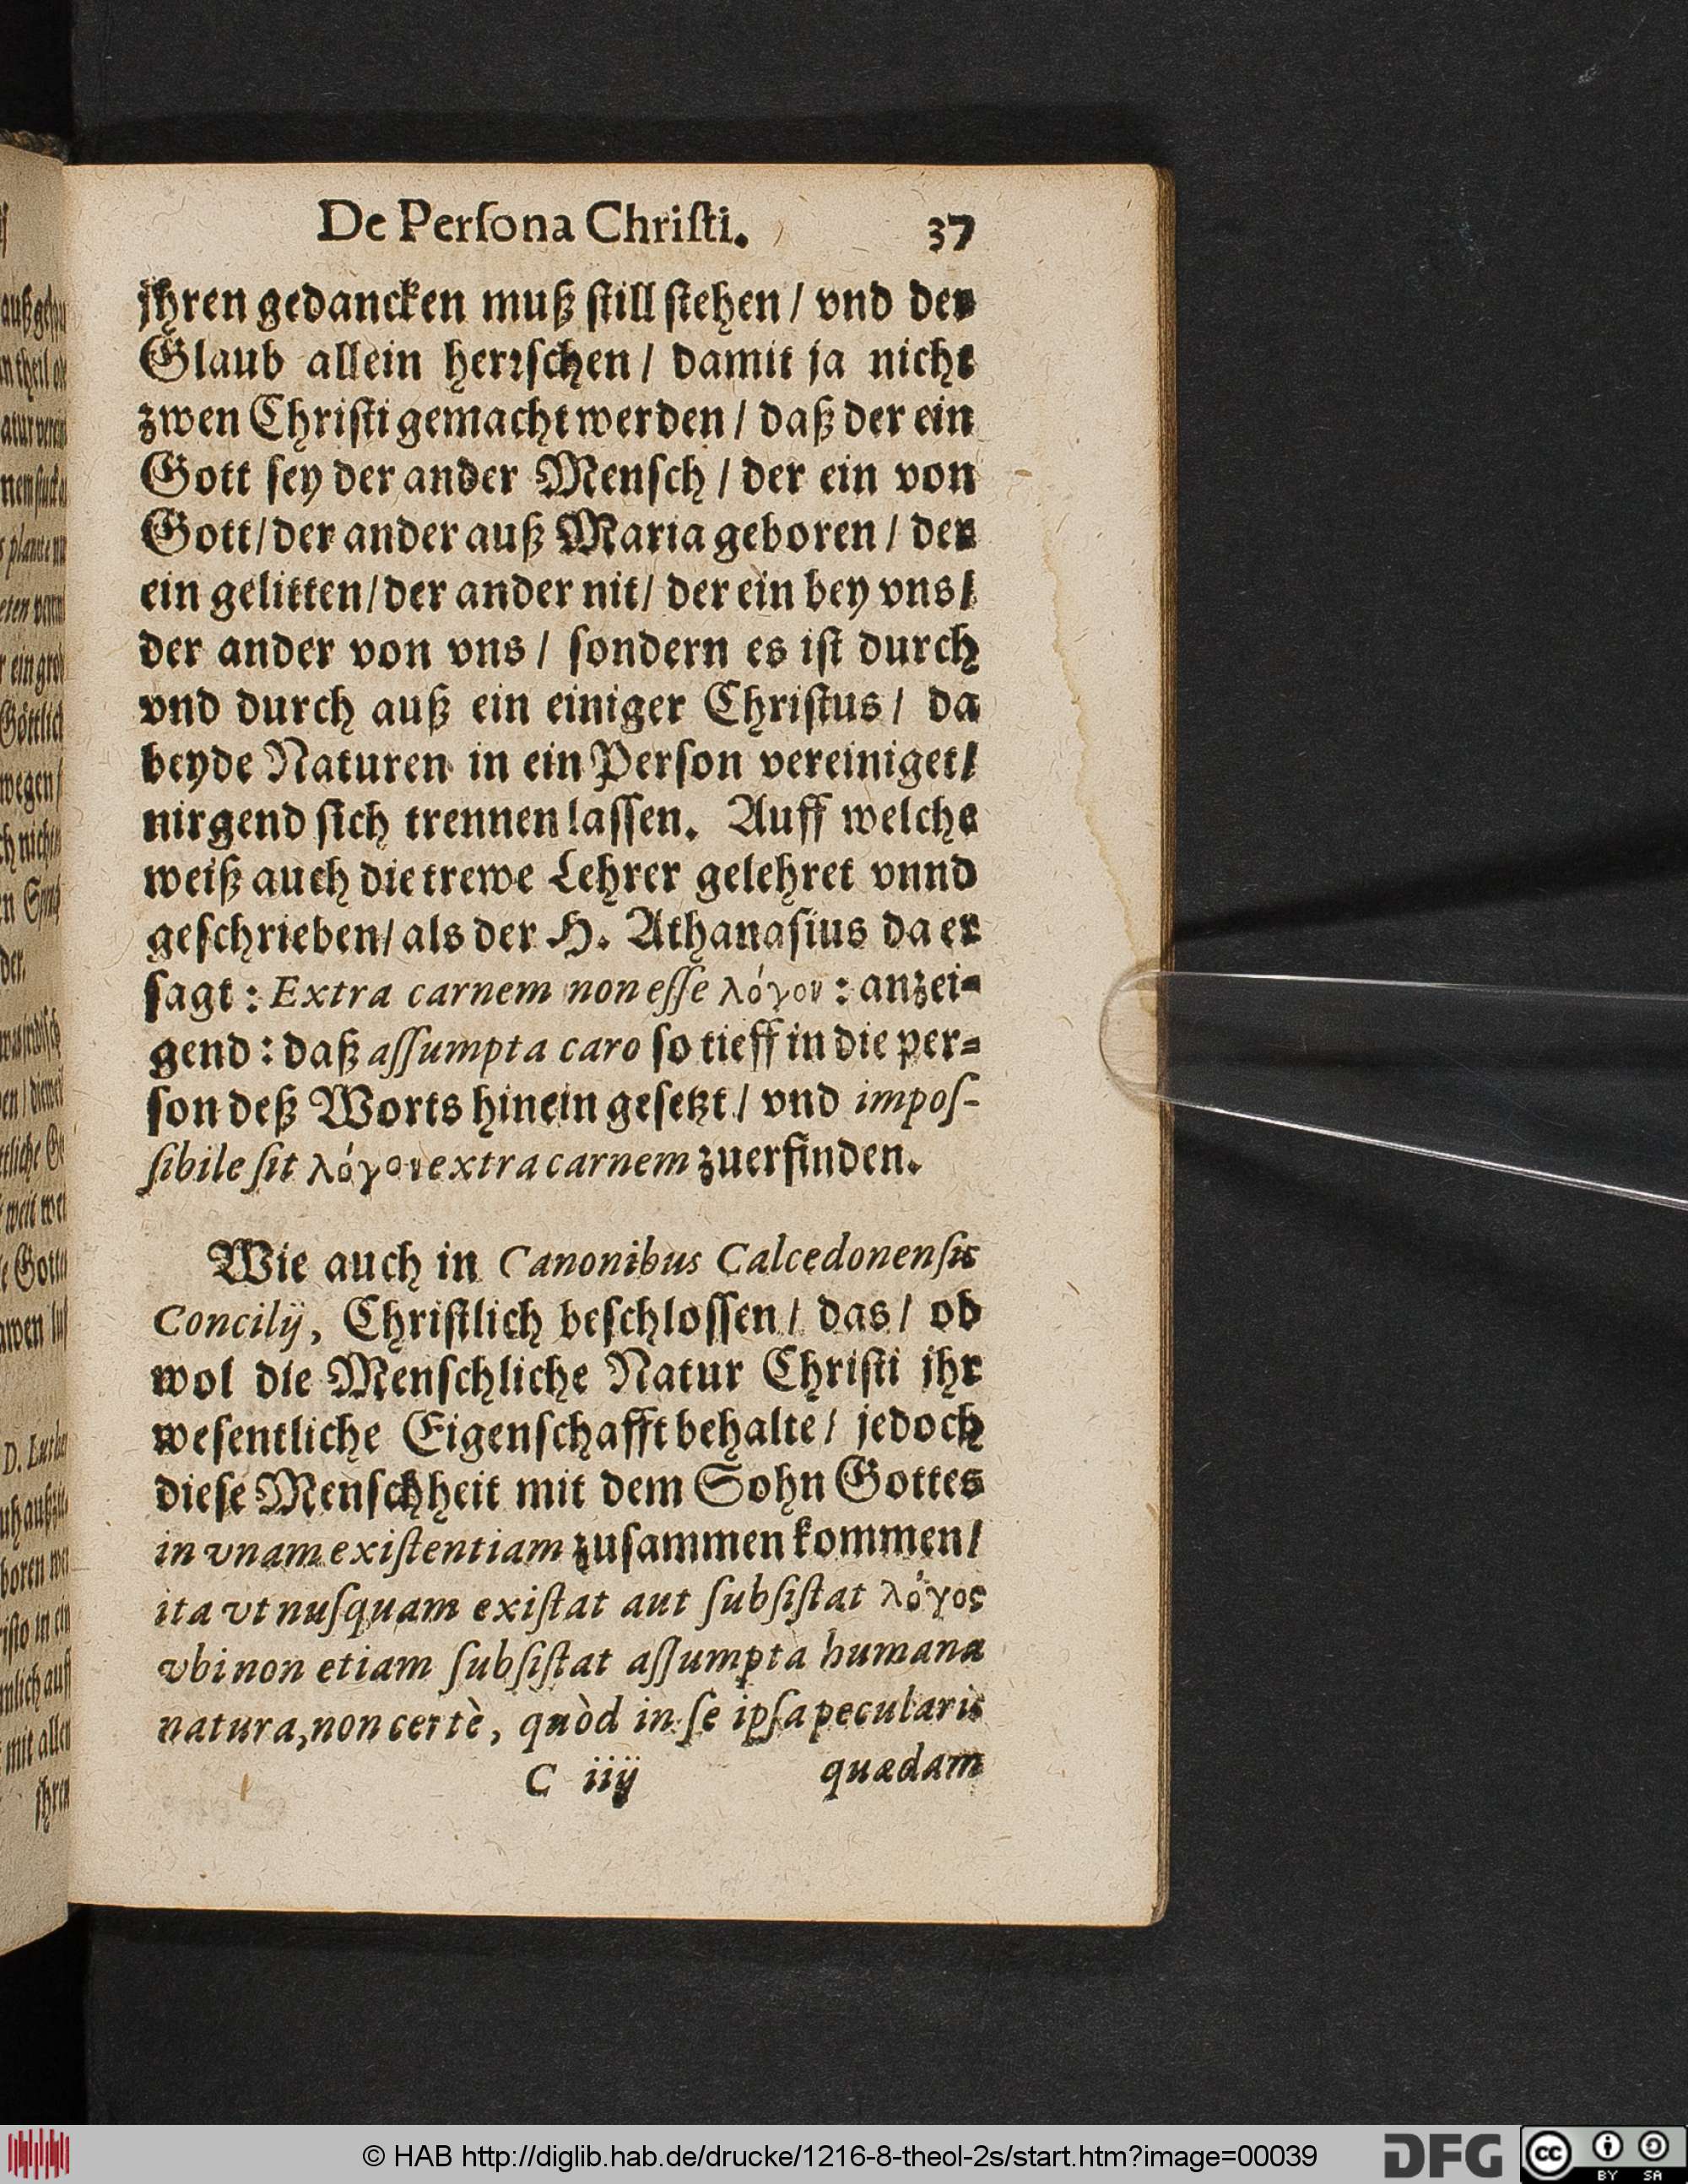 De Perſona Chriſti.
37
jhren gedancken muß ſtill ſtehen / vnd der
Glaub allein herꝛſchen / damit ja nicht
zwen Chriſti gemacht werden / daß der ein
Gott ſey der ander Menſch / der ein von
Gott / der ander auß Maria geboren / der
ein gelitten / der ander nit / der ein bey vns /
der ander von vns / ſondern es iſt durch
vnd durch auß ein einiger Chriſtus / da
beyde Naturen in ein Perſon vereiniget /
nirgend ſich trennen laſſen. Auff welche
weiß auch die trewe Lehrer gelehret vnnd
geſchrieben / als der H. Athanaſius da er
ſagt : Extra carnem non eſſe λόγον : anzei-
gend : daß aſſumpta caro ſo tieff in die per-
ſon deß Worts hinein geſetzt / vnd impoſ-
ſibile ſit λόγον extra carnem zuerfinden.
Wie auch in Canonibus Calcedonenſis
Concilij, Chriſtlich beſchloſſen / das / ob
wol die Menſchliche Natur Chriſti jhr
weſentliche Eigenſchafft behalte / jedoch
dieſe Menſchheit mit dem Sohn Gottes
in vnam exiſtentiam zuſammen kommen /
ita vt nuſquam exiſtat aut ſubſiſtat λόγος
vbi non etiam ſubſiſtat aſſumpta humana
natura, non certè, quòd in ſe ipſa pecularis
C iiij
quædam
© HAB http://diglib.hab.de/drucke/1216-8-theol-2s/start.htm?image=00039
DFG
cc
BY SA